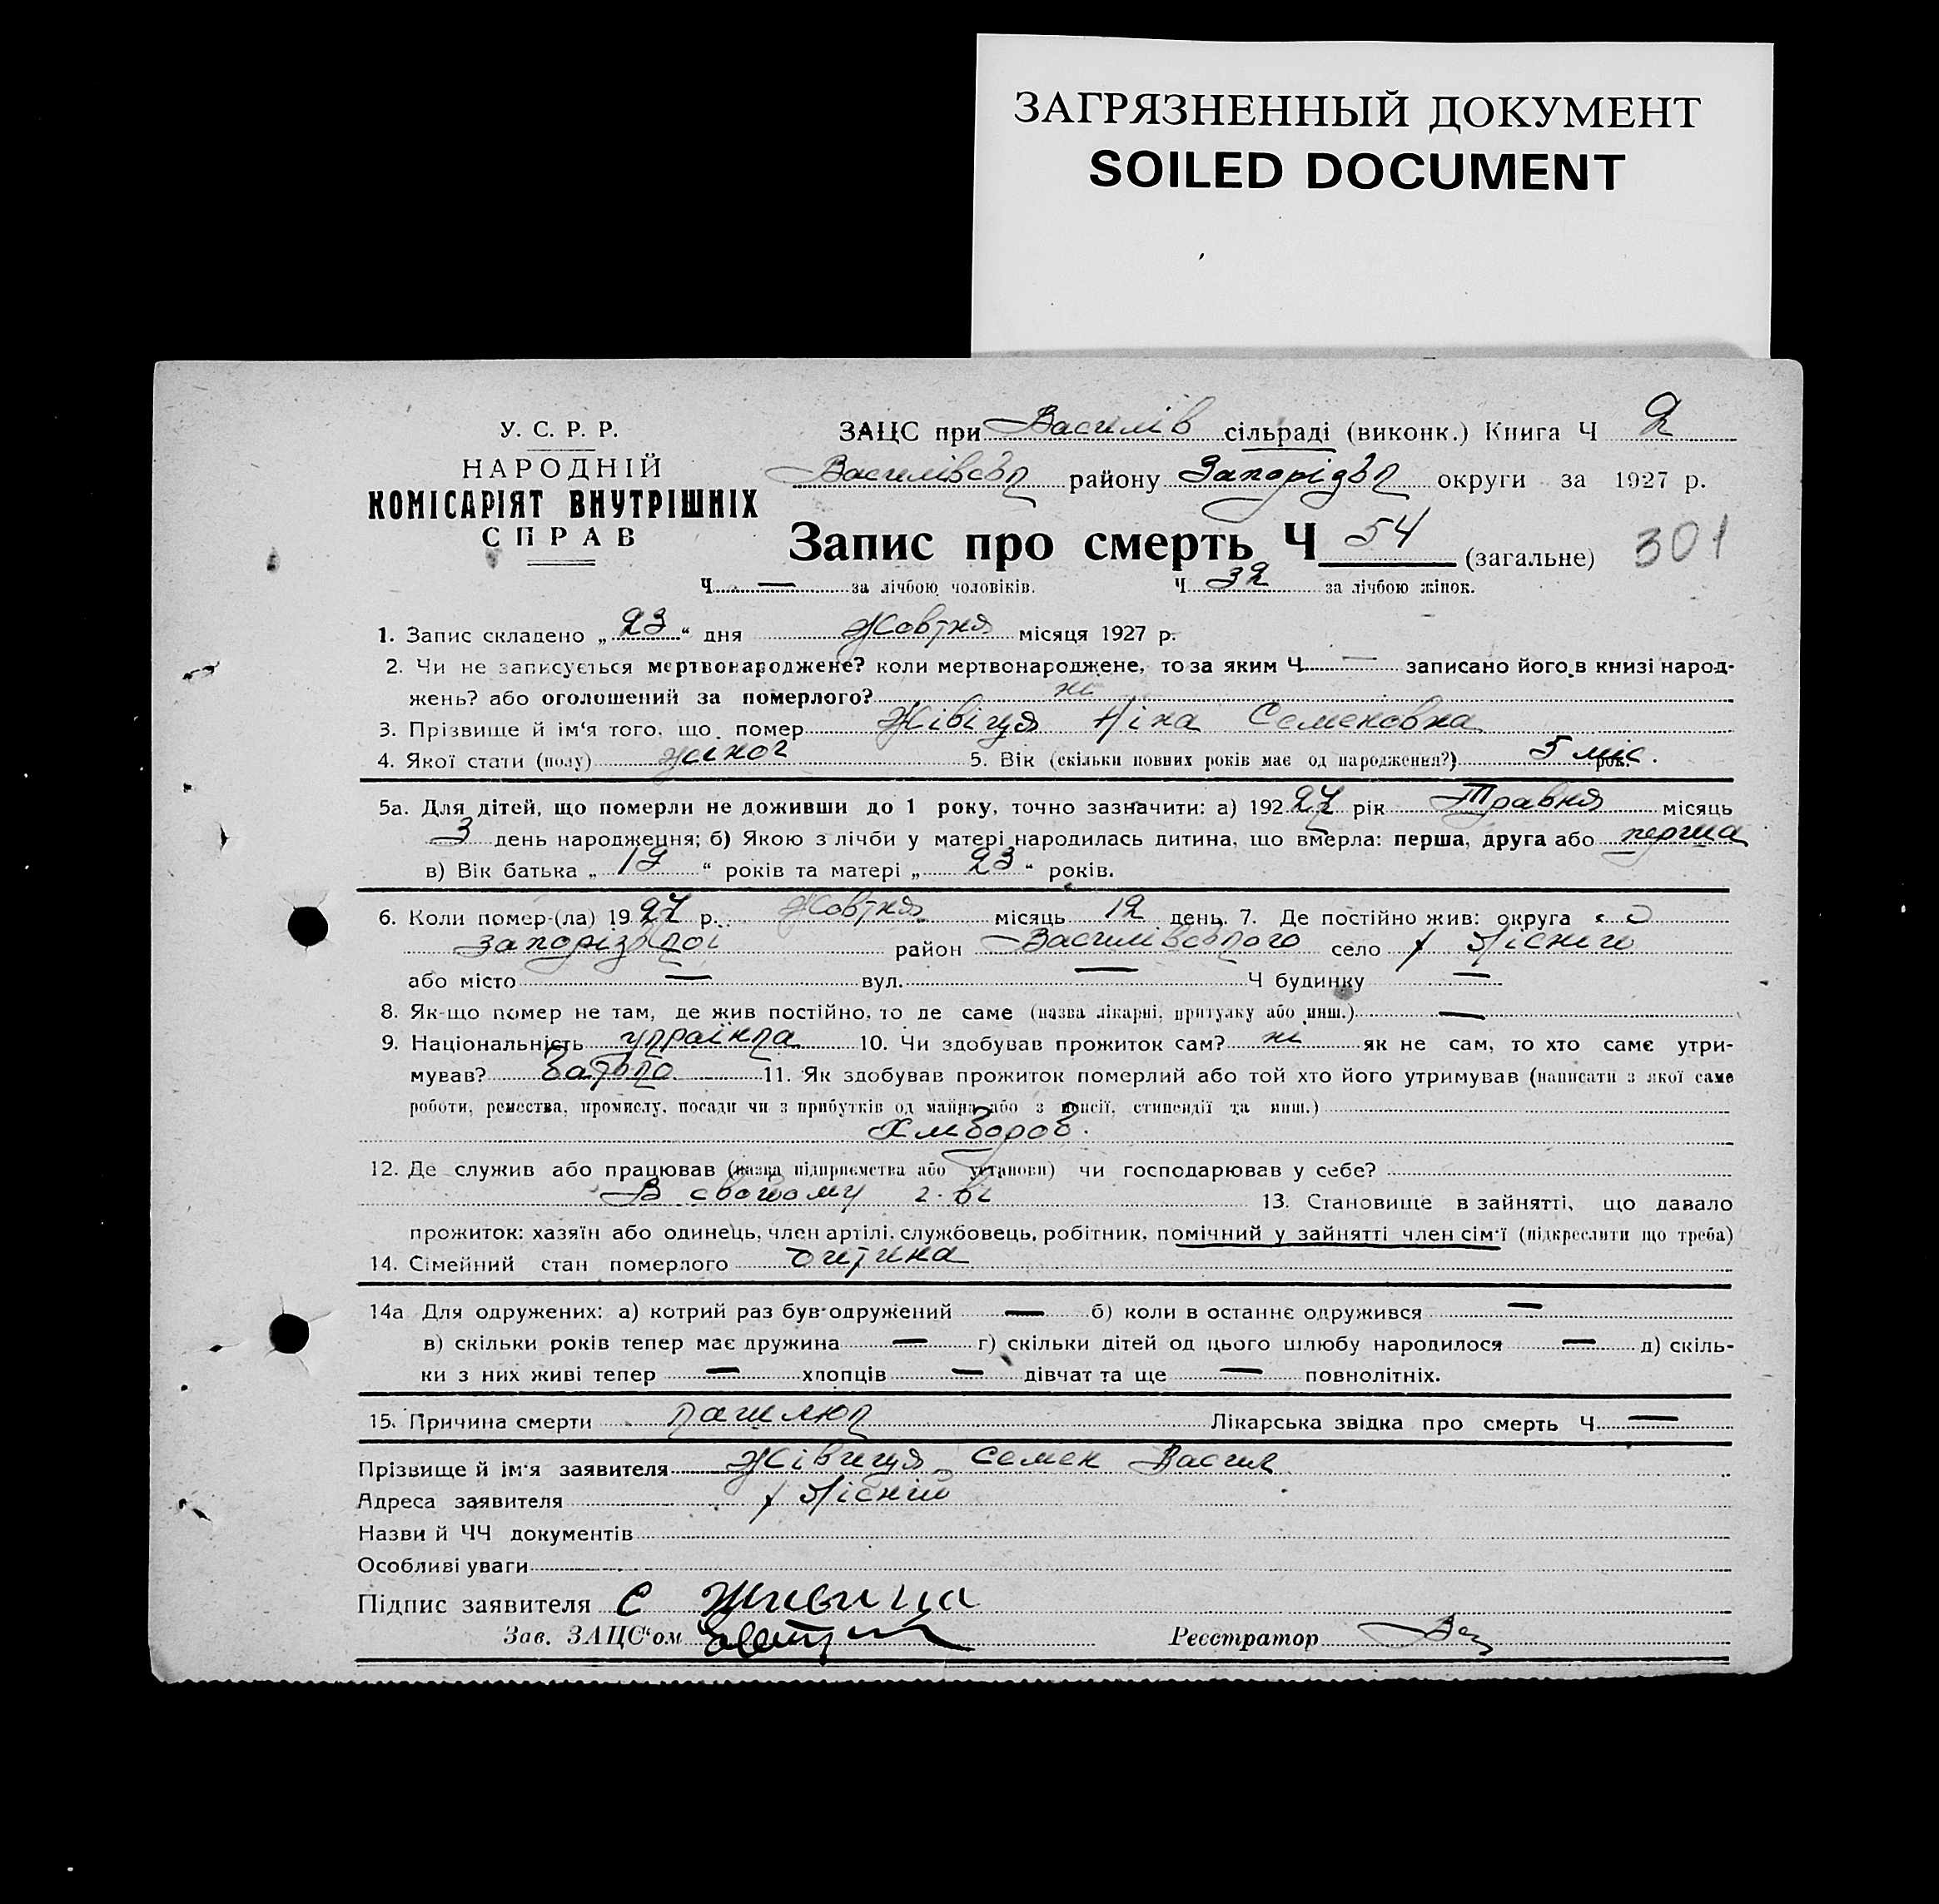 ЗАГРЯЗНЕННЫЙ ДОКУМЕНТ
SOILED DOCUMENT
У. С. Р. Р.
НАРОДНІЙ
КОМІСАРІЯТ ВНУТРІШНІХ
СПРАВ
ЗАЦС при Василів сільраді (виконк.) Книга Ч 2
Василівськ району Запорізьк округи за 1927 р.
Запис про смерть Ч 54 (загальне) 301
Ч — за лічбою чоловіків. Ч 32 за лічбою жінок.
1. Запис складено „ 23 “ дня Жовтня місяця 1927 р.
2. Чи не записується мертвонароджене? коли мертвонароджене, то за яким Ч — записано його в книзі народ-
жень? або оголошений за померлого? ні
3. Прізвище й ім'я того, що помер Живіця Ніна Семеновна
4. Якої стати (полу) жіноч 5. Вік (скільки повних років має од народження?) 5 міс. рок.
5а. Для дітей, що померли не доживши до 1 року, точно зазначити: а) 192 27 рік Травня місяць
3 день народження; б) Якою з лічби у матері народилась дитина, що вмерла: перша, друга або перша
в) Вік батька „ 19 “ років та матері „ 23 “ років.
6. Коли помер-(ла) 19 27 р. Жовтня місяць 12 день. 7. Де постійно жив: округа
Запорізької район Василівського село х Лісний
або місто — вул. — Ч будинку —
8. Як-що помер не там, де жив постійно, то де саме (назва лікарні, притулку або инш.) —
9. Національність українка 10. Чи здобував прожиток сам? ні як не сам, то хто саме утри-
мував? Батько 11. Як здобував прожиток померлий або той хто його утримував (написати з якої саме
роботи, ремества, промислу, посади чи з прибутків од майна або з пенсії, стипендії та инш.)
Хлібороб.
12. Де служив або працював (назва підприємства або установи) чи господарював у себе?
В своїому г-ві 13. Становище в зайнятті, що давало
прожиток: хазяїн або одинець, член артілі, службовець, робітник, помічний у зайнятті член сім'ї (підкреслити що треба)
14. Сімейний стан померлого дитина
14а Для одружених: а) котрий раз був одружений — б) коли в останнє одружився —
в) скільки років тепер має дружина — г) скільки дітей од цього шлюбу народилося — д) скіль-
ки з них живі тепер — хлопців — дівчат та ще — повнолітніх.
15. Причина смерти кашлюк Лікарська звідка про смерть Ч —
Прізвище й ім'я заявителя Живиця Семен Васил
Адреса заявителя х Лісний
Назви й ЧЧ документів
Особливі уваги
Підпис заявителя С Живица
Зав. ЗАЦС'ом
Реєстратор